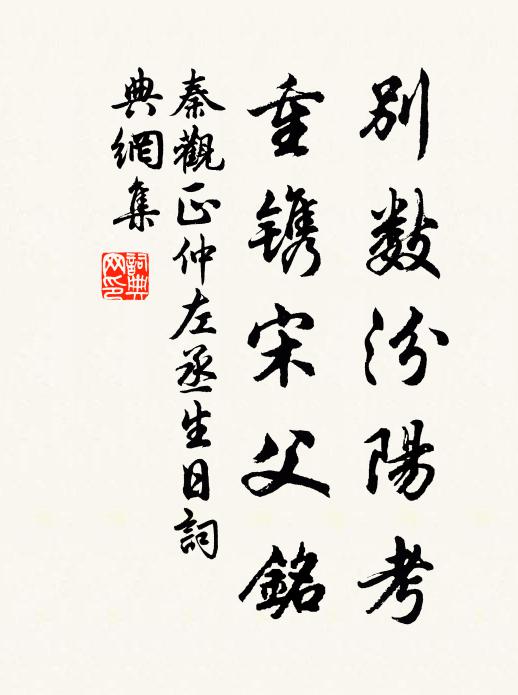 別數汾陽考
重鐫宋父銘
秦觀正仲左丞生日詞
典網集
詞典網印